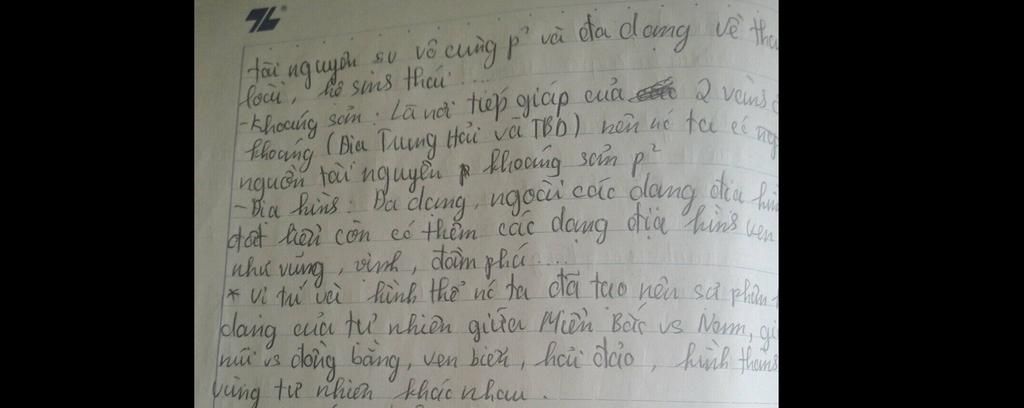 TL
tài nguyên sv vô cùng p² và đa dạng về
loài, hệ sinh thái ....
- Khoáng sản : Là nơi tiếp giáp của 2 vành
khoáng (Địa Trung Hải và TBD) nên nc ta có
nguồn tài nguyên khoáng sản p²
- Địa hình : Đa dạng, ngoài các dạng địa
đất liền còn có thêm các dạng địa hình ven
như vũng, vịnh, đầm phá ....
* Vị trí và hình thể nc ta đã tạo nên sự phân
dạng của tự nhiên giữa Miền Bắc vs Nam,
núi vs đồng bằng, ven biển, hải đảo, hình thành
vùng tự nhiên khác nhau.